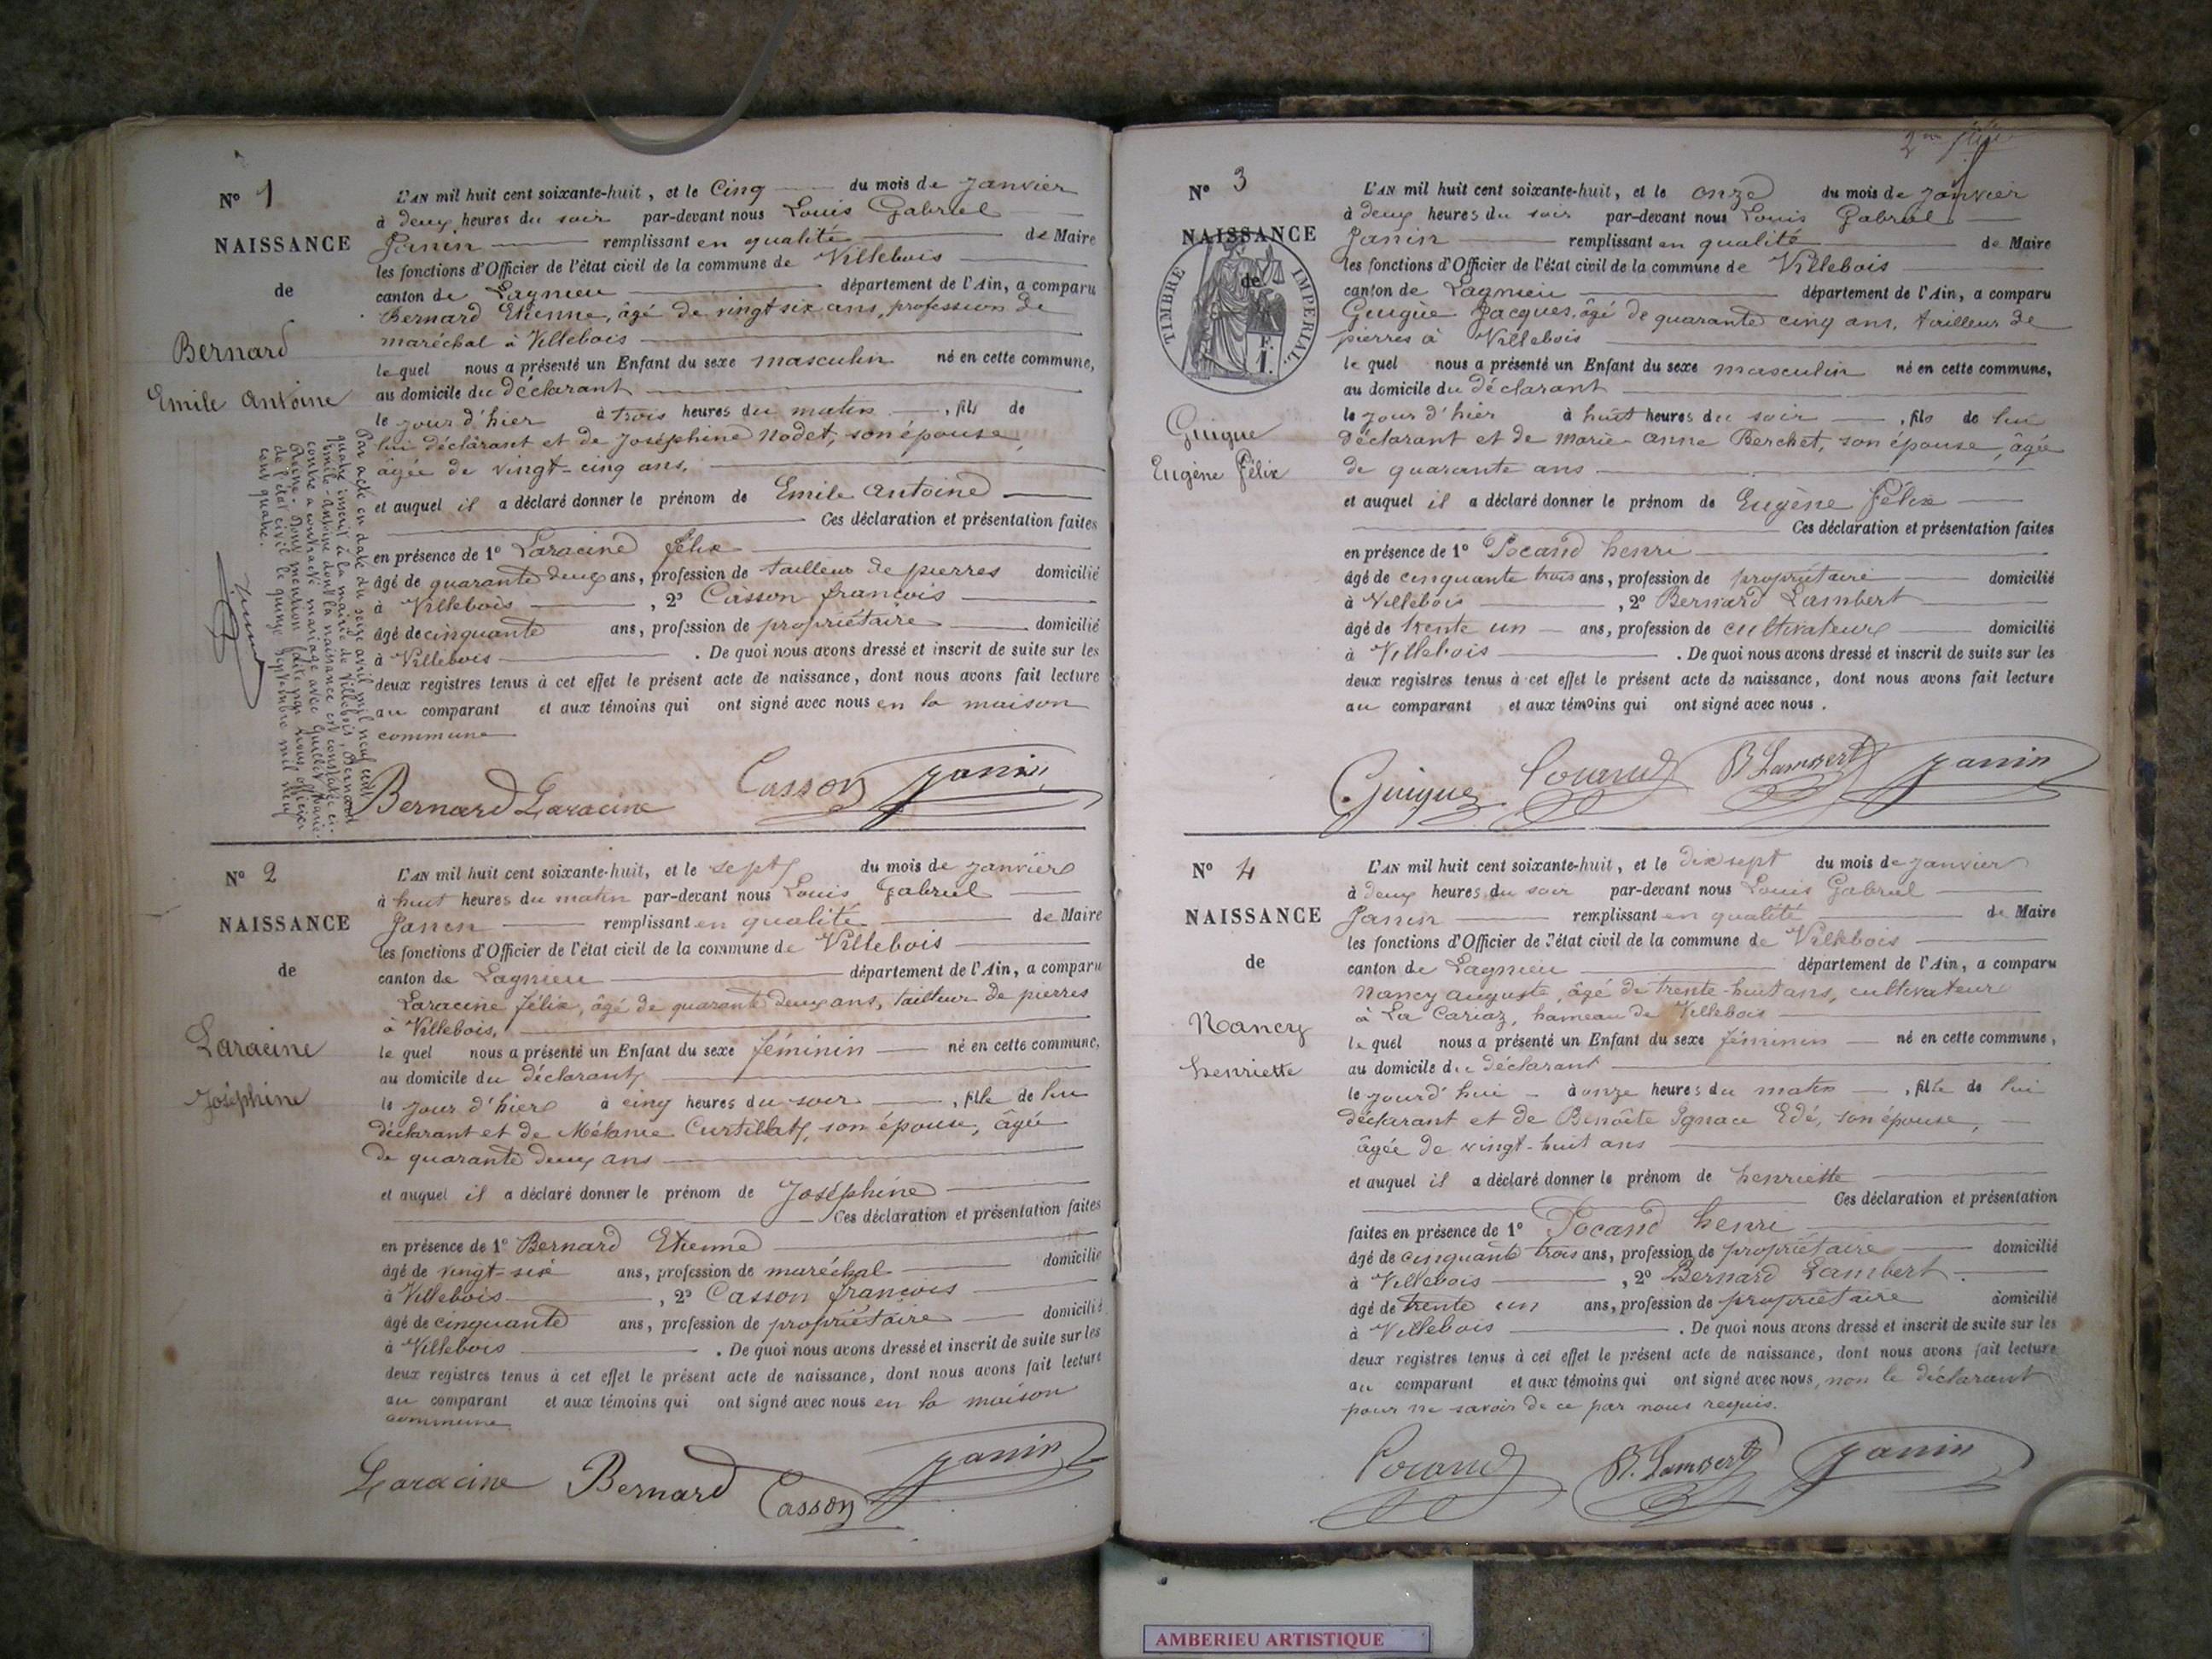 N° 1
NAISSANCE
de
Bernard
Emile Antoine
L'AN mil huit cent soixante-huit, et le Cinq du mois de janvier
à deux heures du soir par-devant nous Louis Gabriel
Janin remplissant en qualité de Maire
les fonctions d'Officier de l'état civil de la commune de Villebois
canton de Lagnieu département de l'Ain, a comparu
Bernard Etienne, âgé de vingt six ans, profession de
maréchal à Villebois
lequel nous a présenté un Enfant du sexe masculin né en cette commune,
au domicile du déclarant
le jour d'hier à trois heures du matin, fils de
lui déclarant et de Joséphine Nodet, son épouse,
âgée de vingt-cinq ans,
et auquel il a déclaré donner le prénom de Emile Antoine
Ces déclaration et présentation faites
en présence de 1° Laracine félix
âgé de quarante deux ans, profession de tailleur de pierres domicilié
à Villebois, 2° Casson françois
âgé de cinquante ans, profession de propriétaire domicilié
à Villebois. De quoi nous avons dressé et inscrit de suite sur les
deux registres tenus à cet effet le présent acte de naissance, dont nous avons fait lecture
au comparant et aux témoins qui ont signé avec nous en la maison
commune
Bernard Laracine Casson Janin
Par acte en date du seize avril mil neuf cent
quatre inscrit à la mairie de Villebois, Bernard
Emile-Antoine dont la naissance est constatée ci-
contre a contracté mariage avec Guillot Marie-
Reine. Dont mention faite par nous officier
de l'état civil le quinze septembre mil neuf
cent quatre.
N° 2
NAISSANCE
de
Laracine
Joséphine
L'AN mil huit cent soixante-huit, et le sept du mois de janvier
à huit heures du matin par-devant nous Louis Gabriel
Janin remplissant en qualité de Maire
les fonctions d'Officier de l'état civil de la commune de Villebois
canton de Lagnieu département de l'Ain, a comparu
Laracine félix, âgé de quarante deux ans, tailleur de pierres
à Villebois,
le quel nous a présenté un Enfant du sexe féminin né en cette commune,
au domicile du déclarant
le jour d'hier à cinq heures du soir, fille de lui
déclarant et de Mélanie Curtillat, son épouse, âgée
de quarante deux ans
et auquel il a déclaré donner le prénom de Joséphine
Ces déclaration et présentation faites
en présence de 1° Bernard Etienne
âgé de vingt-six ans, profession de maréchal domicilié
à Villebois, 2° Casson françois
âgé de cinquante ans, profession de propriétaire domicilié
à Villebois. De quoi nous avons dressé et inscrit de suite sur les
deux registres tenus à cet effet le présent acte de naissance, dont nous avons fait lecture
au comparant et aux témoins qui ont signé avec nous en la maison
commune
Laracine Bernard Casson Janin
N° 3
NAISSANCE
de
TIMBRE IMPERIAL
Guigue
Eugène félix
L'AN mil huit cent soixante-huit, et le onze du mois de janvier
à deux heures du soir par-devant nous Louis Gabriel
Janin remplissant en qualité de Maire
les fonctions d'Officier de l'état civil de la commune de Villebois
canton de Lagnieu département de l'Ain, a comparu
Guigue Jacques, âgé de quarante cinq ans, tailleur de
pierres à Villebois
le quel nous a présenté un Enfant du sexe masculin né en cette commune,
au domicile du déclarant
le jour d'hier à huit heures du soir, fils de lui
déclarant et de Marie Anne Berchet, son épouse, âgée
de quarante ans
et auquel il a déclaré donner le prénom de Eugène félix
Ces déclaration et présentation faites
en présence de 1° Pocand henri
âgé de cinquante trois ans, profession de propriétaire domicilié
à Villebois, 2° Bernard Lambert
âgé de trente un ans, profession de cultivateur domicilié
à Villebois. De quoi nous avons dressé et inscrit de suite sur les
deux registres tenus à cet effet le présent acte de naissance, dont nous avons fait lecture
au comparant et aux témoins qui ont signé avec nous.
Guigue Pocand B Lambert Janin
N° 4
NAISSANCE
de
Nancy
henriette
L'AN mil huit cent soixante-huit, et le dix sept du mois de janvier
à deux heures du soir par-devant nous Louis Gabriel
Janin remplissant en qualité de Maire
les fonctions d'Officier de l'état civil de la commune de Villebois
canton de Lagnieu département de l'Ain, a comparu
Nancy auguste, âgé de trente-huit ans, cultivateur
à La Cariaz, hameau de Villebois
le quel nous a présenté un Enfant du sexe féminin né en cette commune,
au domicile du déclarant
le jourd'hui à onze heures du matin, fille de lui
déclarant et de Benoîte Ignace Edé, son épouse,
âgée de vingt-huit ans
et auquel il a déclaré donner le prénom de henriette
Ces déclaration et présentation
faites en présence de 1° Pocand henri
âgé de cinquante trois ans, profession de propriétaire domicilié
à Villebois, 2° Bernard Lambert.
âgé de trente un ans, profession de propriétaire domicilié
à Villebois. De quoi nous avons dressé et inscrit de suite sur les
deux registres tenus à cet effet le présent acte de naissance, dont nous avons fait lecture
au comparant et aux témoins qui ont signé avec nous, non le déclarant
pour ne savoir de ce par nous requis.
Pocand B. Lambert Janin
AMBERIEU ARTISTIQUE